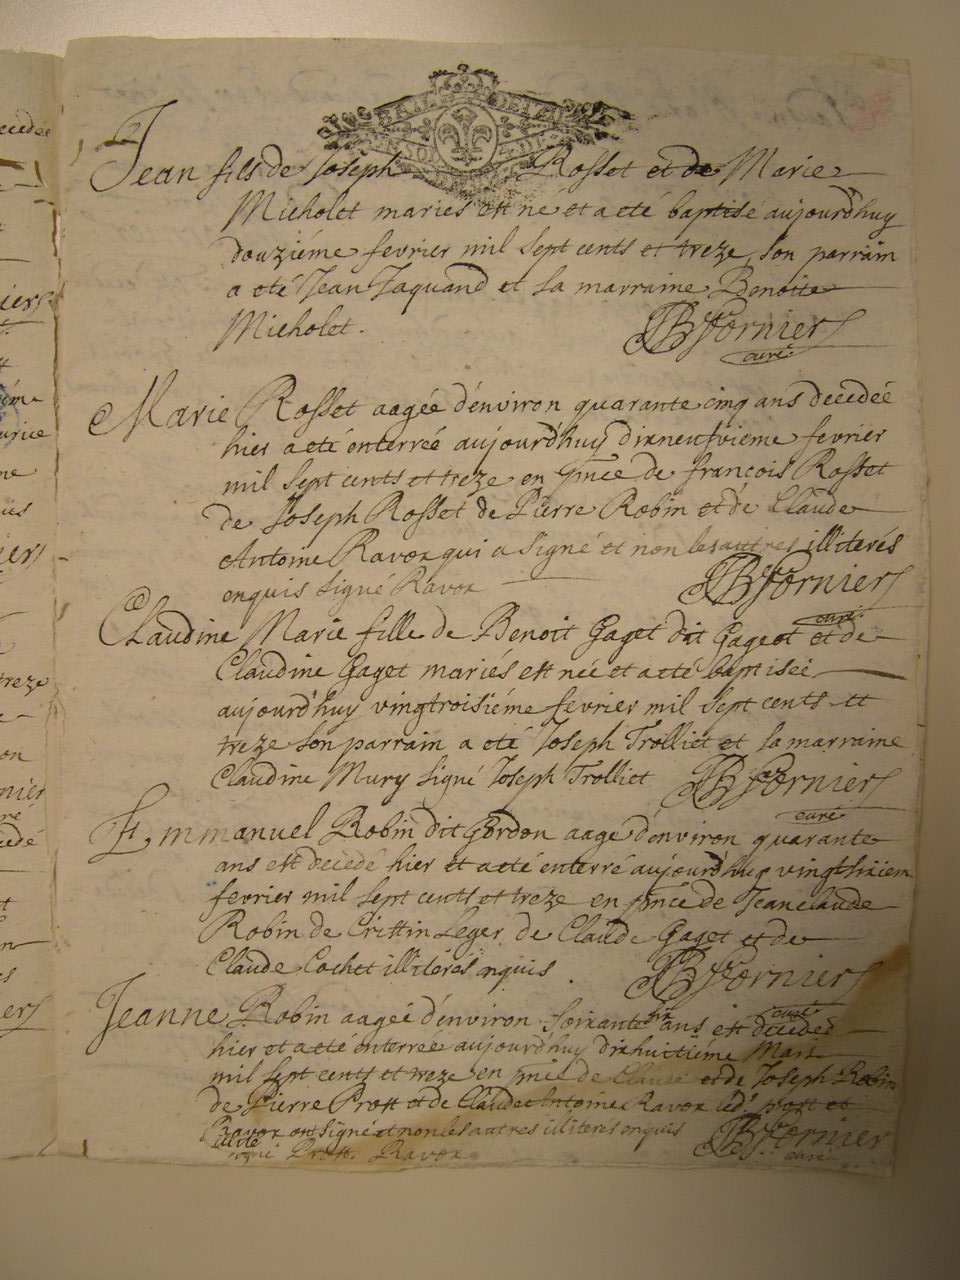 Jean fils de Joseph Rosset et de Marie
Micholet mariés est né et a eté baptisé aujourd'huy
douziéme fevrier mil sept cents et treze son parrain
a eté Jean Jaquand et sa marraine Benoite
Micholet. Fornier
curé
Marie Rosset aagée d'environ quarante cinq ans decedeé
hier a eté enterreé aujourd'huy dixneufvieme fevrier
mil sept cents et treze en pnce de françois Rosset
de Joseph Rosset de Pierre Robin et de Claude
Antoine Ravox qui a signé et non les autres illiterés
enquis signé Ravox Fornier
curé
Claudine Marie fille de Benoit Gaget dit Gageot et de
Claudine Gaget mariés est neé et a eté baptiseé
aujourd'huy vingtroisiéme fevrier mil sept cents et
treze son parrain a eté Joseph Trolliet et sa marraine
Claudine Mury signé Joseph Trolliet Fornier
curé
Emmanuel Robin dit Gordon aagé d'environ quarante
ans est decedé hier et a eté enterré aujourd'huy vingtsixiem
fevrier mil sept cents et treze en pnce de Jeanclaude
Robin de Cristin Leger de Claude Gaget et de
Claude Cochet illiterés enquis Fornier
curé
Jeanne Robin aageé d'environ soixante six ans est decedeé
hier et a eté enterreé aujourd'huy dixhuitiéme Mars
mil sept cents et treze en pnce de Claude et de Joseph Robin
de Pierre Prost et de Claude Antoine Ravox led. prost et
Ravox ont signé et non les autres illiteres enquis Fornier
signé Prost. Ravox curé